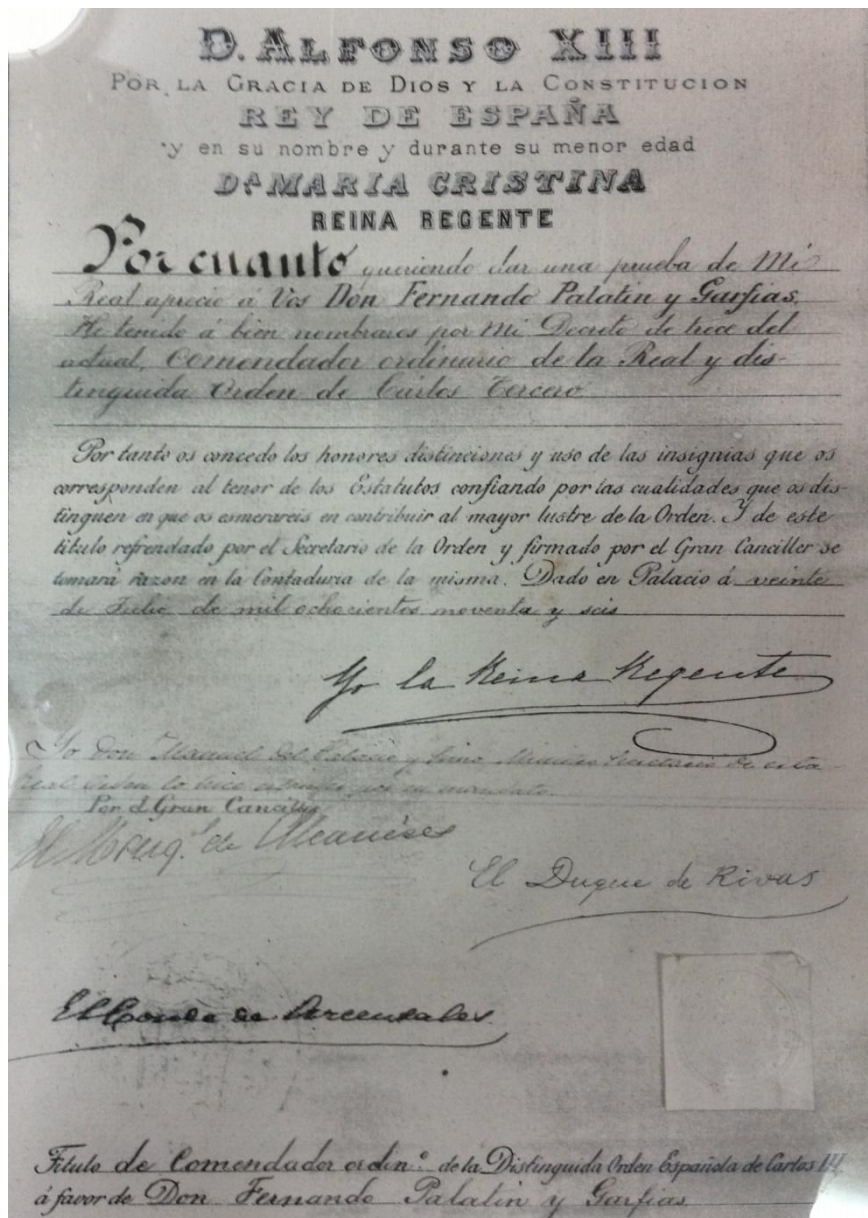 D. ALFONSO XIII
POR LA GRACIA DE DIOS Y LA CONSTITUCION
REY DE ESPAÑA
y en su nombre y durante su menor edad
Dª MARIA CRISTINA
REINA REGENTE
Por cuanto queriendo dar una prueba de Mi
Real aprecio á Vos Don Fernando Palatin y Garfias,
He tenido á bien nombraros por Mi Decreto de trece del
actual, Comendador ordinario de la Real y dis-
tinguida Orden de Cárlos Tercero
Por tanto os concedo los honores distinciones y uso de las insignias que os
corresponden al tenor de los Estatutos confiando por las cualidades que os dis-
tinguen en que os esmerareis en contribuir al mayor lustre de la Orden. Y de este
título refrendado por el Secretario de la Orden y firmado por el Gran Canciller se
tomará razon en la Contaduria de la misma. Dado en Palacio á veinte
de Julio de mil ochocientos noventa y seis
Yo la Reina Regente
Yo Don Manuel del Palacio y Simo Ministro Secretario de esta
Real Orden lo hice por su mandato.
Por el Gran Canciller
El Marq.s de Alcañices
El Duque de Rivas
El Conde de Arcentales
Título de Comendador ordin.º de la Distinguida Orden Española de Carlos III
á favor de Don Fernando Palatin y Garfias